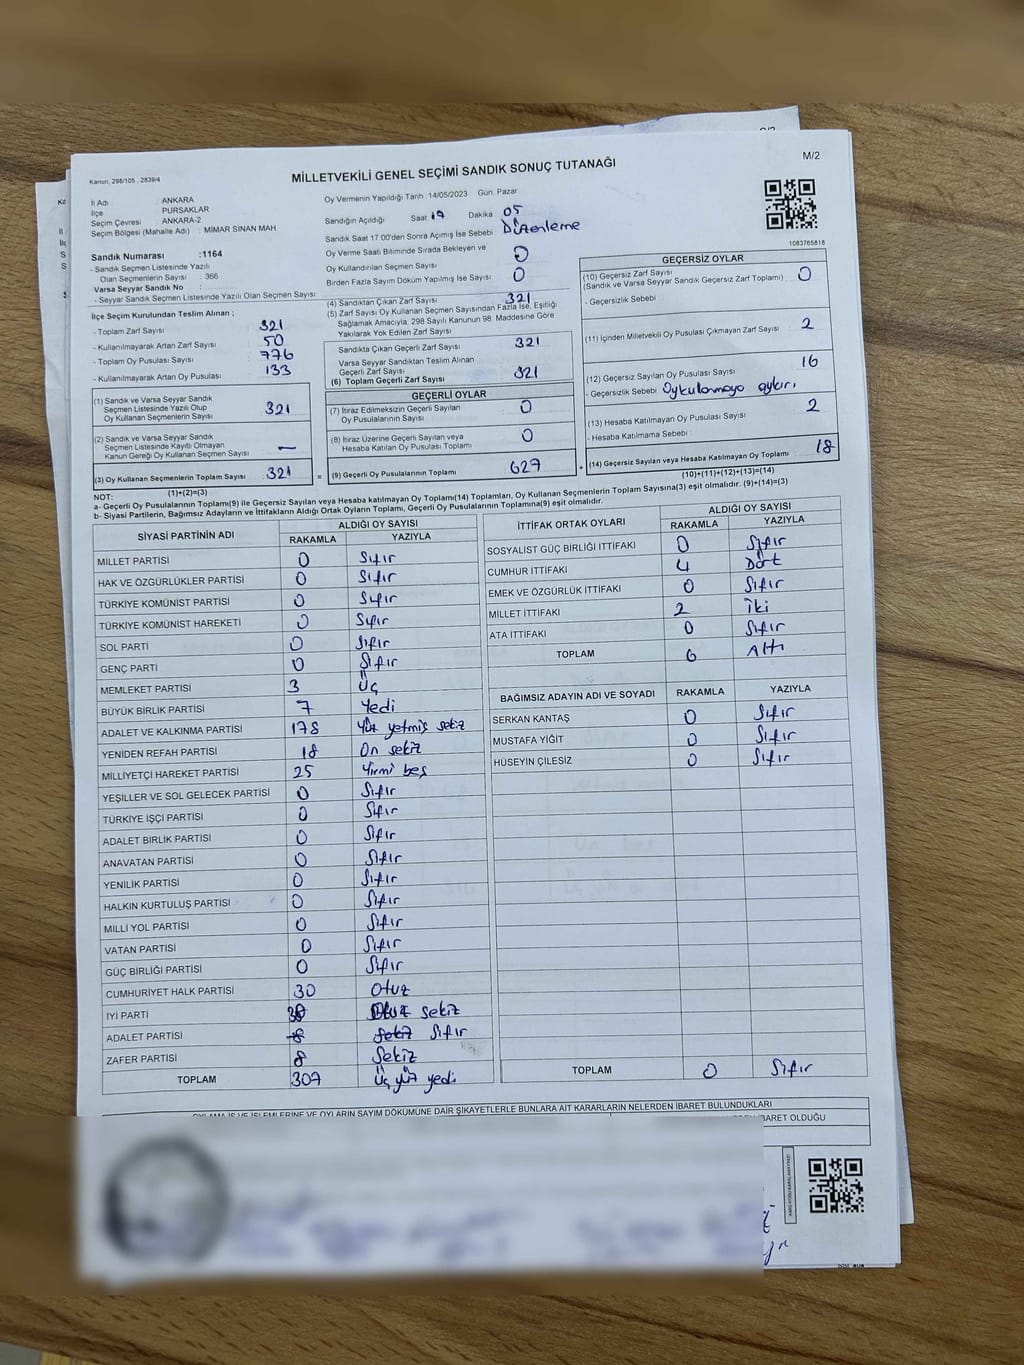 M/2
Kanun, 298/105 , 2839/4
MİLLETVEKİLİ GENEL SEÇİMİ SANDIK SONUÇ TUTANAĞI
İl Adı : ANKARA
İlçe : PURSAKLAR
Seçim Çevresi : ANKARA-2
Seçim Bölgesi (Mahalle Adı) : MİMAR SİNAN MAH
Sandık Numarası :1164
- Sandık Seçmen Listesinde Yazılı
Olan Seçmenlerin Sayısı : 366
Varsa Seyyar Sandık No :
- Seyyar Sandık Seçmen Listesinde Yazılı Olan Seçmen Sayısı :
İlçe Seçim Kurulundan Teslim Alınan ;
- Toplam Zarf Sayısı : 321
- Kullanılmayarak Artan Zarf Sayısı : 50
- Toplam Oy Pusulası Sayısı : 776
- Kullanılmayarak Artan Oy Pusulası : 133
(1) Sandık ve Varsa Seyyar Sandık
Seçmen Listesinde Yazılı Olup
Oy Kullanan Seçmenlerin Sayısı : 321
(2) Sandık ve Varsa Seyyar Sandık
Seçmen Listesinde Kayıtlı Olmayan
Kanun Gereği Oy Kullanan Seçmen Sayısı : —
(3) Oy Kullanan Seçmenlerin Toplam Sayısı : 321
(1)+(2)=(3)
Oy Vermenin Yapıldığı Tarih : 14/05/2023 Gün: Pazar
Sandığın Açıldığı Saat 17 Dakika 05
Sandık Saat 17.00'den Sonra Açımış İse Sebebi : Düzenleme
Oy Verme Saati Bitiminde Sırada Bekleyen ve
Oy Kullandırılan Seçmen Sayısı : 0
Birden Fazla Sayım Döküm Yapılmış İse Sayısı : 0
(4) Sandıktan Çıkan Zarf Sayısı : 321
(5) Zarf Sayısı Oy Kullanan Seçmen Sayısından Fazla İse, Eşitliği
Sağlamak Amacıyla, 298 Sayılı Kanunun 98. Maddesine Göre
Yakılarak Yok Edilen Zarf Sayısı :
Sandıkta Çıkan Geçerli Zarf Sayısı : 321
Varsa Seyyar Sandıktan Teslim Alınan
Geçerli Zarf Sayısı :
(6) Toplam Geçerli Zarf Sayısı : 321
GEÇERLİ OYLAR
(7) İtiraz Edilmeksizin Geçerli Sayılan
Oy Pusulalarının Sayısı : 0
(8) İtiraz Üzerine Geçerli Sayılan veya
Hesaba Katılan Oy Pusulası Toplamı : 0
= (9) Geçerli Oy Pusulalarının Toplamı : 627
1083765818
GEÇERSİZ OYLAR
(10) Geçersiz Zarf Sayısı
(Sandık ve Varsa Seyyar Sandık Geçersiz Zarf Toplamı) : 0
- Geçersizlik Sebebi :
(11) İçinden Milletvekili Oy Pusulası Çıkmayan Zarf Sayısı : 2
(12) Geçersiz Sayılan Oy Pusulası Sayısı : 16
- Geçersizlik Sebebi : Oykullanmaya aykırı
(13) Hesaba Katılmayan Oy Pusulası Sayısı : 2
- Hesaba Katılmama Sebebi :
+ (14) Geçersiz Sayılan veya Hesaba Katılmayan Oy Toplamı : 18
(10)+(11)+(12)+(13)=(14)
NOT:
a- Geçerli Oy Pusulalarının Toplamı(9) ile Geçersiz Sayılan veya Hesaba katılmayan Oy Toplamı(14) Toplamları, Oy Kullanan Seçmenlerin Toplam Sayısına(3) eşit olmalıdır. (9)+(14)=(3)
b- Siyasi Partilerin, Bağımsız Adayların ve İttifakların Aldığı Ortak Oyların Toplamı, Geçerli Oy Pusulalarının Toplamına(9) eşit olmalıdır.
SİYASİ PARTİNİN ADI ALDIĞI OY SAYISI
RAKAMLA YAZIYLA
MİLLET PARTİSİ 0 Sıfır
HAK VE ÖZGÜRLÜKLER PARTİSİ 0 Sıfır
TÜRKİYE KOMÜNİST PARTİSİ 0 Sıfır
TÜRKİYE KOMÜNİST HAREKETİ 0 Sıfır
SOL PARTİ 0 Sıfır
GENÇ PARTİ 0 Sıfır
MEMLEKET PARTİSİ 3 Üç
BÜYÜK BİRLİK PARTİSİ 7 Yedi
ADALET VE KALKINMA PARTİSİ 178 Yüz yetmiş sekiz
YENİDEN REFAH PARTİSİ 18 On sekiz
MİLLİYETÇİ HAREKET PARTİSİ 25 Yirmi beş
YEŞİLLER VE SOL GELECEK PARTİSİ 0 Sıfır
TÜRKİYE İŞÇİ PARTİSİ 0 Sıfır
ADALET BİRLİK PARTİSİ 0 Sıfır
ANAVATAN PARTİSİ 0 Sıfır
YENİLİK PARTİSİ 0 Sıfır
HALKIN KURTULUŞ PARTİSİ 0 Sıfır
MİLLİ YOL PARTİSİ 0 Sıfır
VATAN PARTİSİ 0 Sıfır
GÜÇ BİRLİĞİ PARTİSİ 0 Sıfır
CUMHURİYET HALK PARTİSİ 30 Otuz
İYİ PARTİ 38 Otuz sekiz
ADALET PARTİSİ Sekiz Sıfır
ZAFER PARTİSİ 8 Sekiz
TOPLAM 307 Üç yüz yedi
İTTİFAK ORTAK OYLARI ALDIĞI OY SAYISI
RAKAMLA YAZIYLA
SOSYALİST GÜÇ BİRLİĞİ İTTİFAKI 0 Sıfır
CUMHUR İTTİFAKI 4 Dört
EMEK VE ÖZGÜRLÜK İTTİFAKI 0 Sıfır
MİLLET İTTİFAKI 2 İki
ATA İTTİFAKI 0 Sıfır
TOPLAM 6 Altı
BAĞIMSIZ ADAYIN ADI VE SOYADI RAKAMLA YAZIYLA
SERKAN KANTAŞ 0 Sıfır
MUSTAFA YİĞİT 0 Sıfır
HÜSEYİN ÇİLESİZ 0 Sıfır
TOPLAM 0 Sıfır
OYLAMA İŞ VE İŞLEMLERİNE VE OYLARIN SAYIM DÖKÜMÜNE DAİR ŞİKAYETLERLE BUNLARA AİT KARARLARIN NELERDEN İBARET BULUNDUKLARI
İBARET OLDUĞU